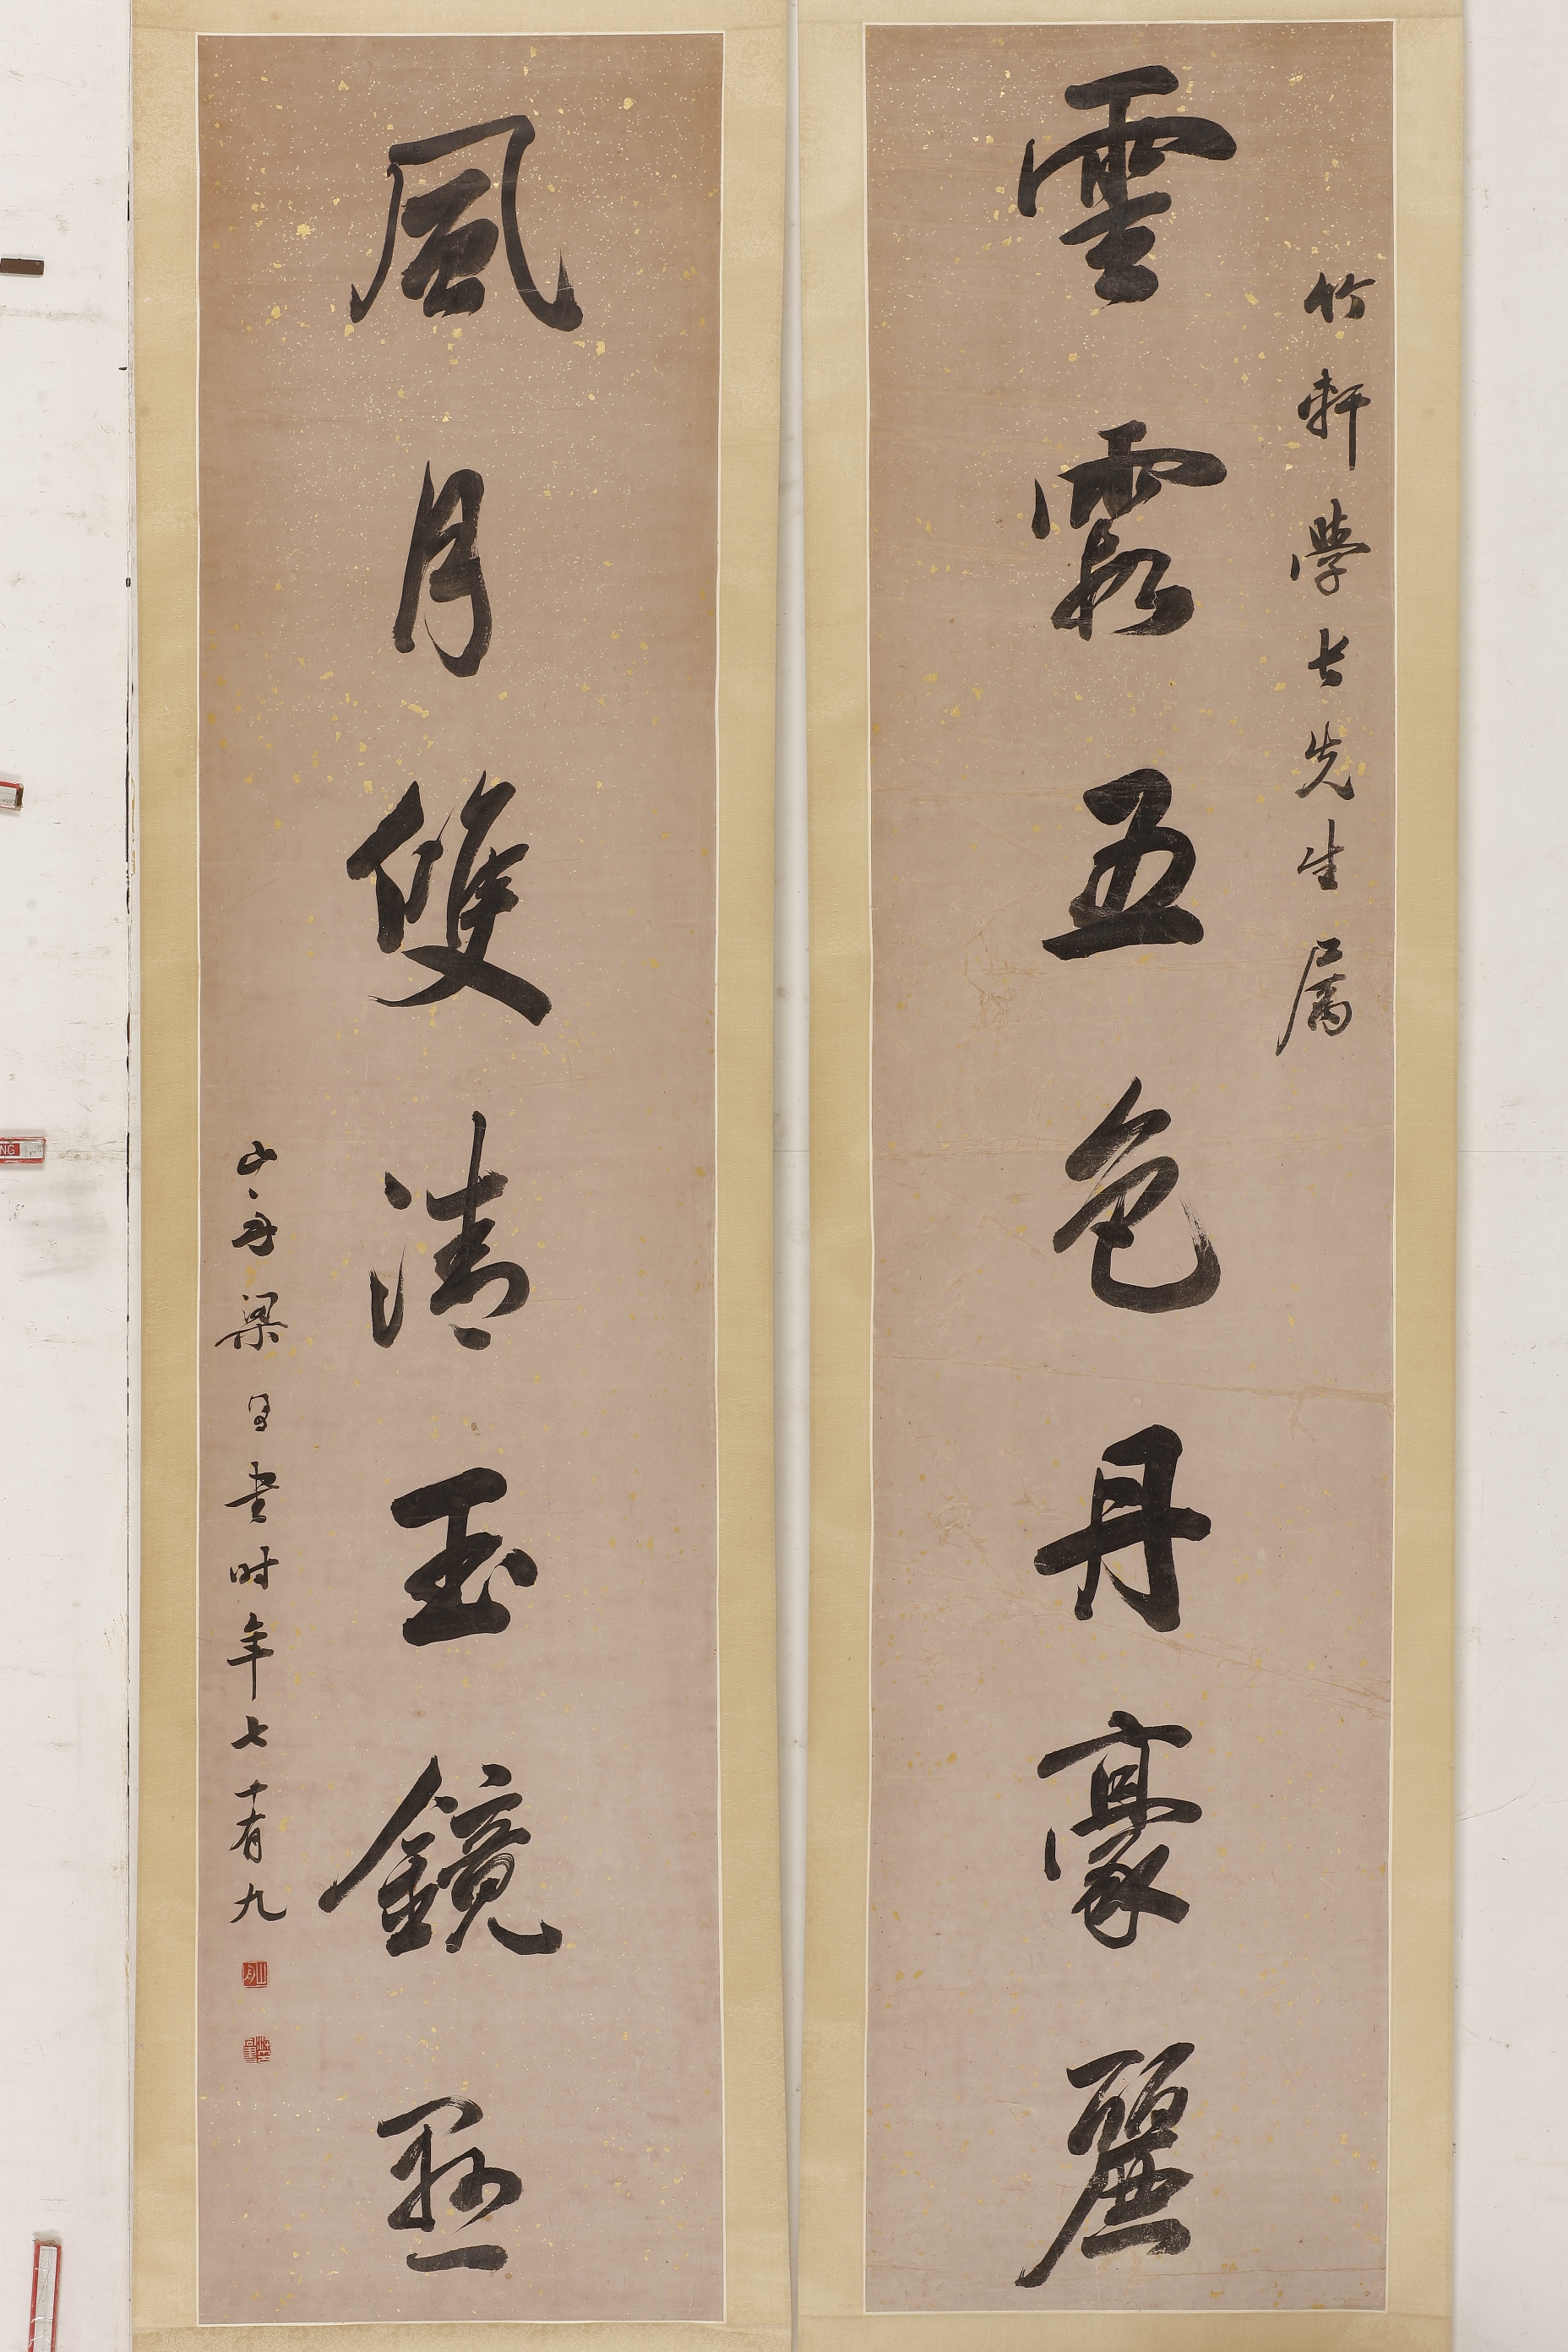 竹軒學長先生属
雲霞五色丹豪麗
風月雙清玉鏡懸
山舟梁同書时年七十有九
山舟
NG